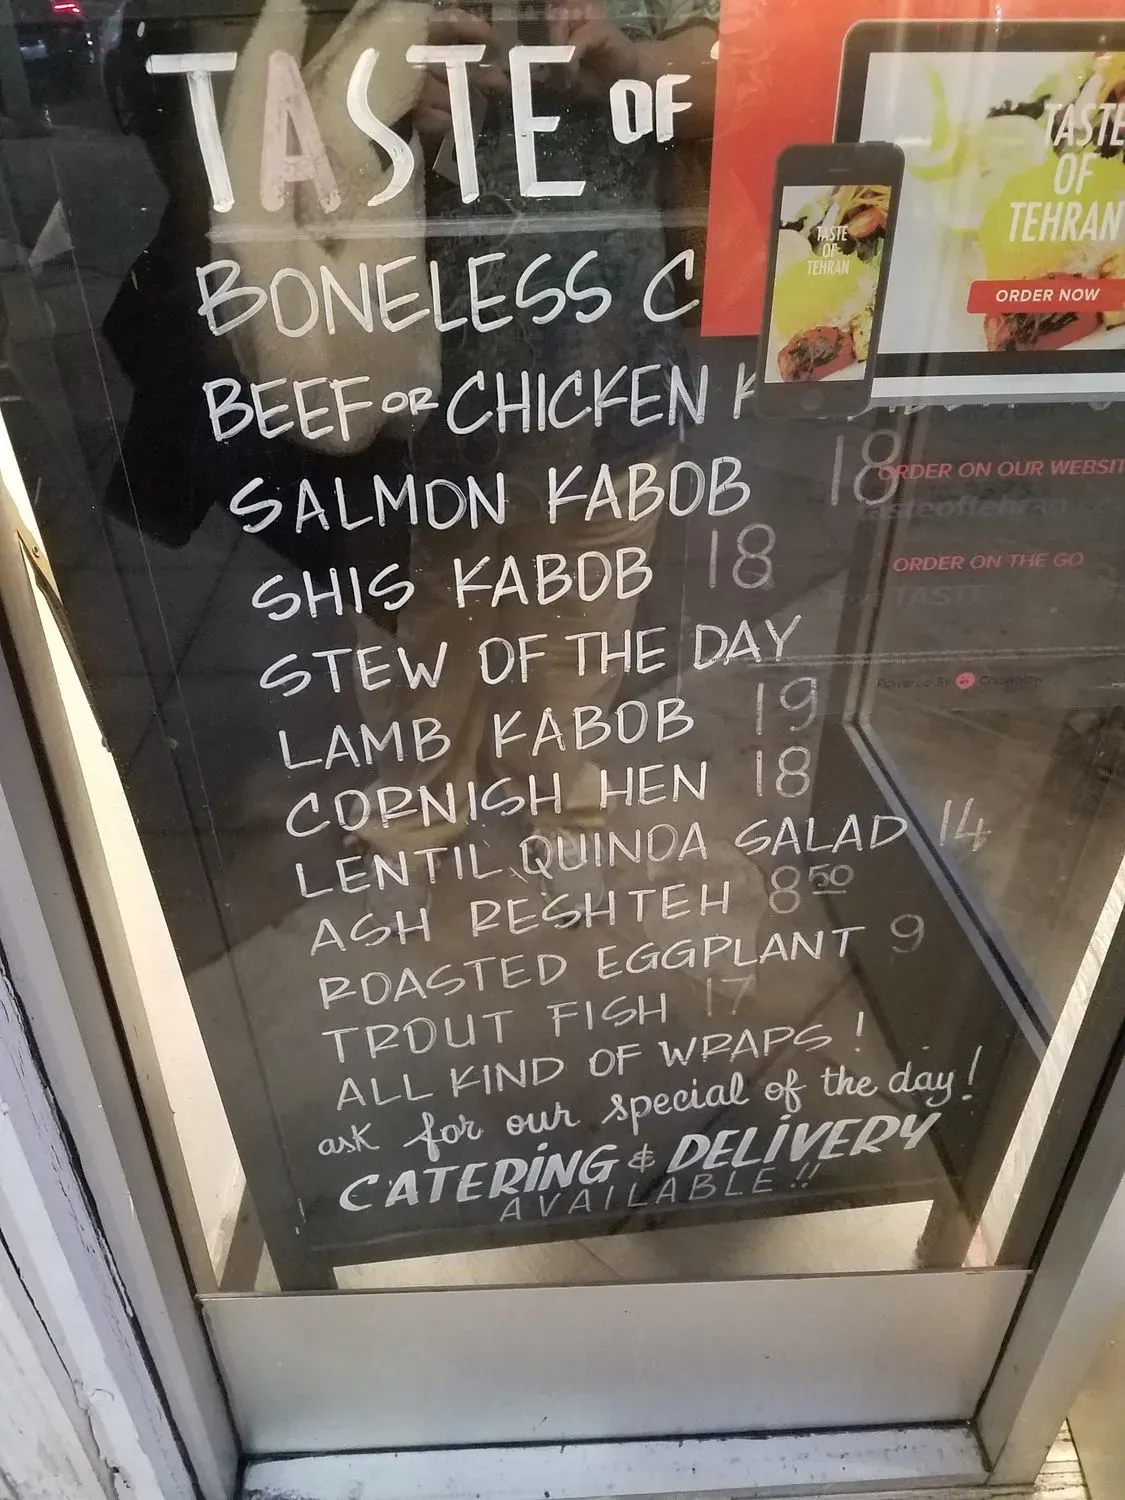 TASTE OF
BONELESS C
BEEF OR CHICKEN K
SALMON KABOB 18
SHIS KABOB 18
STEW OF THE DAY
LAMB KABOB 19
CORNISH HEN 18
LENTIL QUINOA SALAD 14
ASH RESHTEH 8 50
ROASTED EGGPLANT 9
TROUT FISH 17
ALL KIND OF WRAPS !
ask for our special of the day!
CATERING & DELIVERY
AVAILABLE !!
TASTE
OF
TEHRAN
TASTE
OF
TEHRAN
ORDER NOW
ORDER ON OUR WEBSIT
tasteoftehran
ORDER ON THE GO
TASTE
Powered By ChowNow